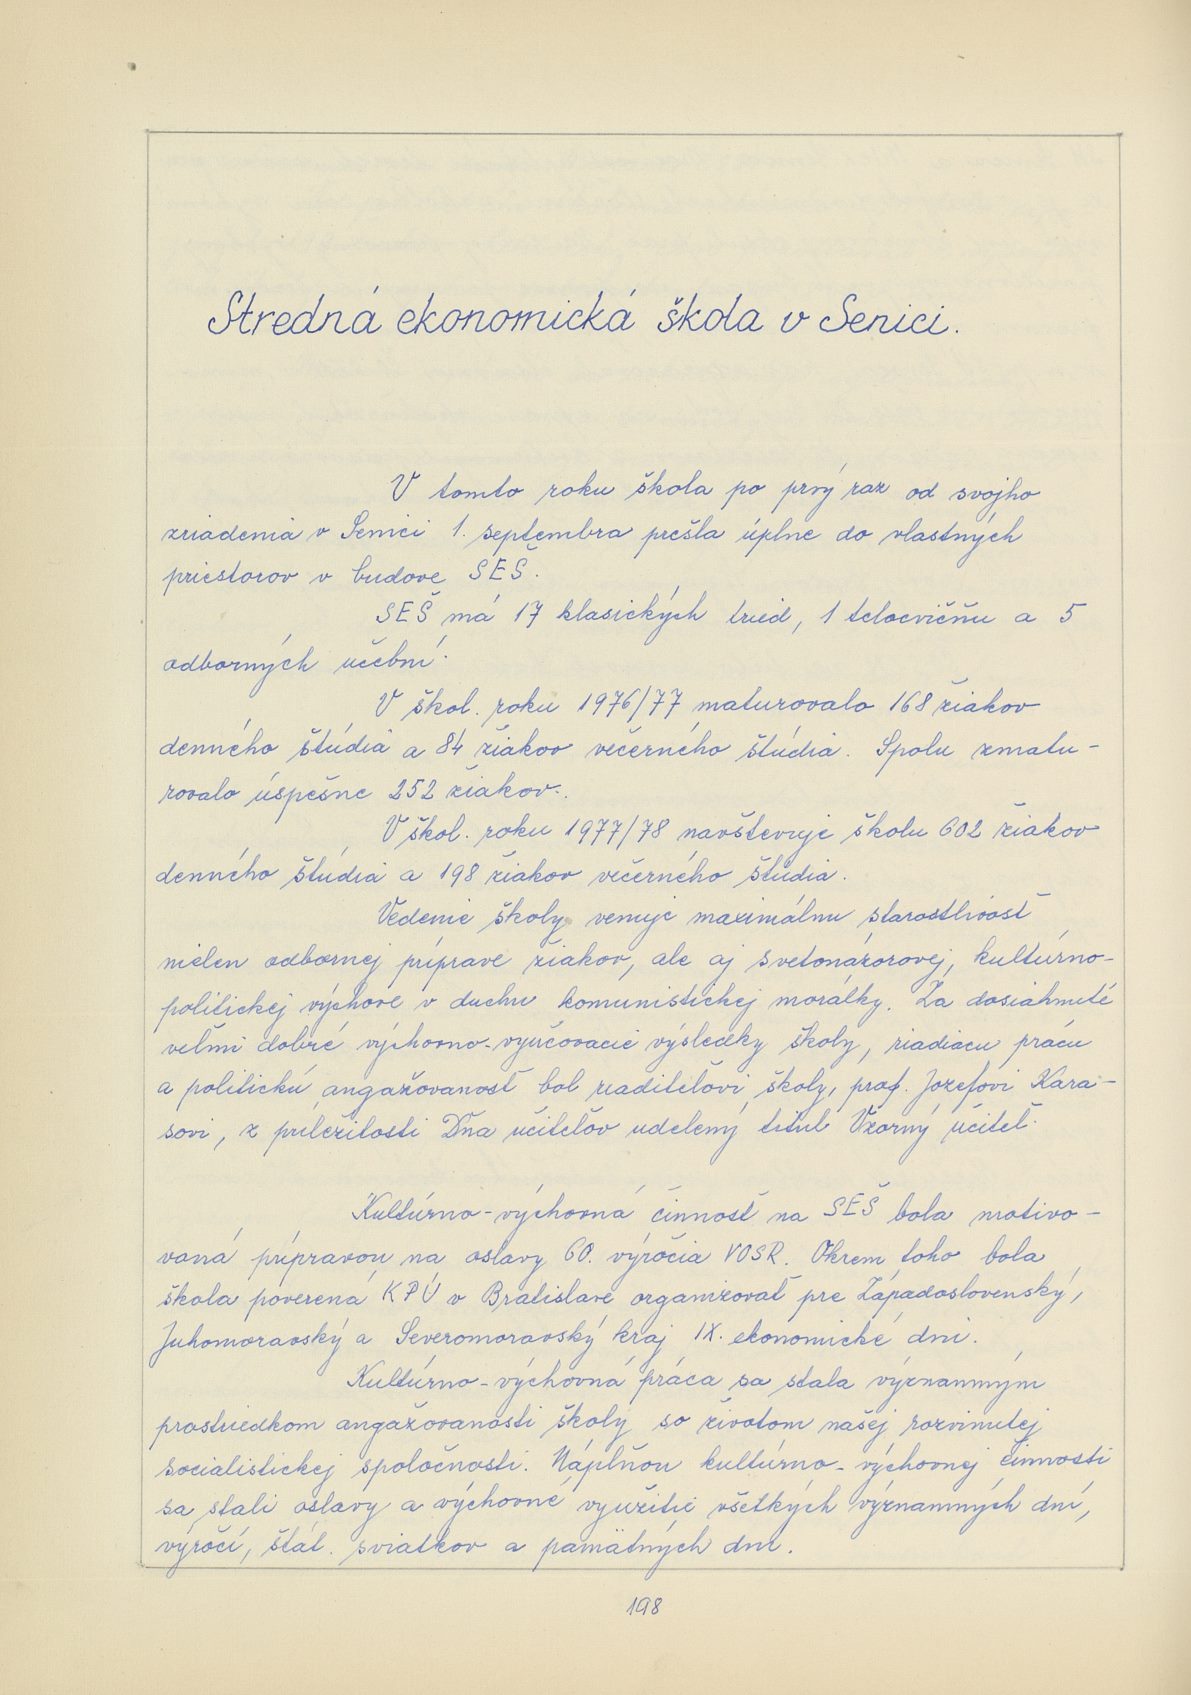 Stredná ekonomická škola v Senici.
V tomto roku škola po prvý raz od svojho
zriadenia v Senici 1. septembra prešla úplne do vlastných
priestorov v budove SEŠ.
SEŠ má 17 klasických tried, 1 telocvičňu a 5
odborných učební.
V škol. roku 1976/77 maturovalo 168 žiakov
denného štúdia a 84 žiakov večerného štúdia. Spolu zmatu-
rovalo úspešne 252 žiakov.
V škol. roku 1977/78 navštevuje školu 602 žiakov
denného štúdia a 198 žiakov večerného štúdia.
Vedenie školy venuje maximálnu starostlivosť
nielen odbornej príprave žiakov, ale aj svetonázorovej, kultúrno-
politickej výchove v duchu komunistickej morálky. Za dosiahnuté
veľmi dobré výchovno-vyučovacie výsledky školy, riadiacu prácu
a politickú angažovanosť bol riaditeľovi školy, prof. Jozefovi Kara-
sovi, z príležitosti Dňa učiteľov udelený titul Vzorný učiteľ.
Kultúrno-výchovná činnosť na SEŠ bola motivo-
vaná prípravou na oslavy 60. výročia VOSR. Okrem toho bola
škola poverená KPÚ v Bratislave organizovať pre Západoslovenský,
Juhomoravský a Severomoravský kraj IX. ekonomické dni.
Kultúrno-výchovná práca sa stala významným
prostriedkom angažovanosti školy so životom našej rozvinutej
socialistickej spoločnosti. Náplňou kultúrno-výchovnej činnosti
sa stali oslavy a výchovné využitie všetkých významných dní,
výročí, štát. sviatkov a pamätných dní.
198